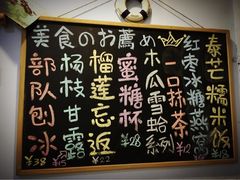 美食のお薦め
部队刨冰
¥38
杨枝甘露
¥15
榴莲忘返
¥22
蜜糖杯
木瓜雪蛤系列
一口抹茶
红枣冰糖燕窝
泰芒糯米饭